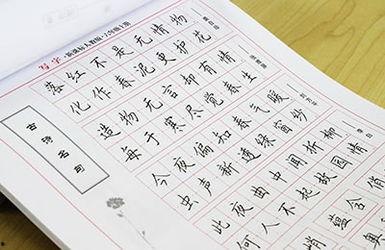 写字·新课标人教版·六年级上册
落红不是无情物
化作春泥更护花
造物无言却有情
每于寒尽觉春生
今夜偏知春气暖
虫声新透绿窗纱
此夜曲中闻折柳
何人不起故园情
蕴含
古诗名句